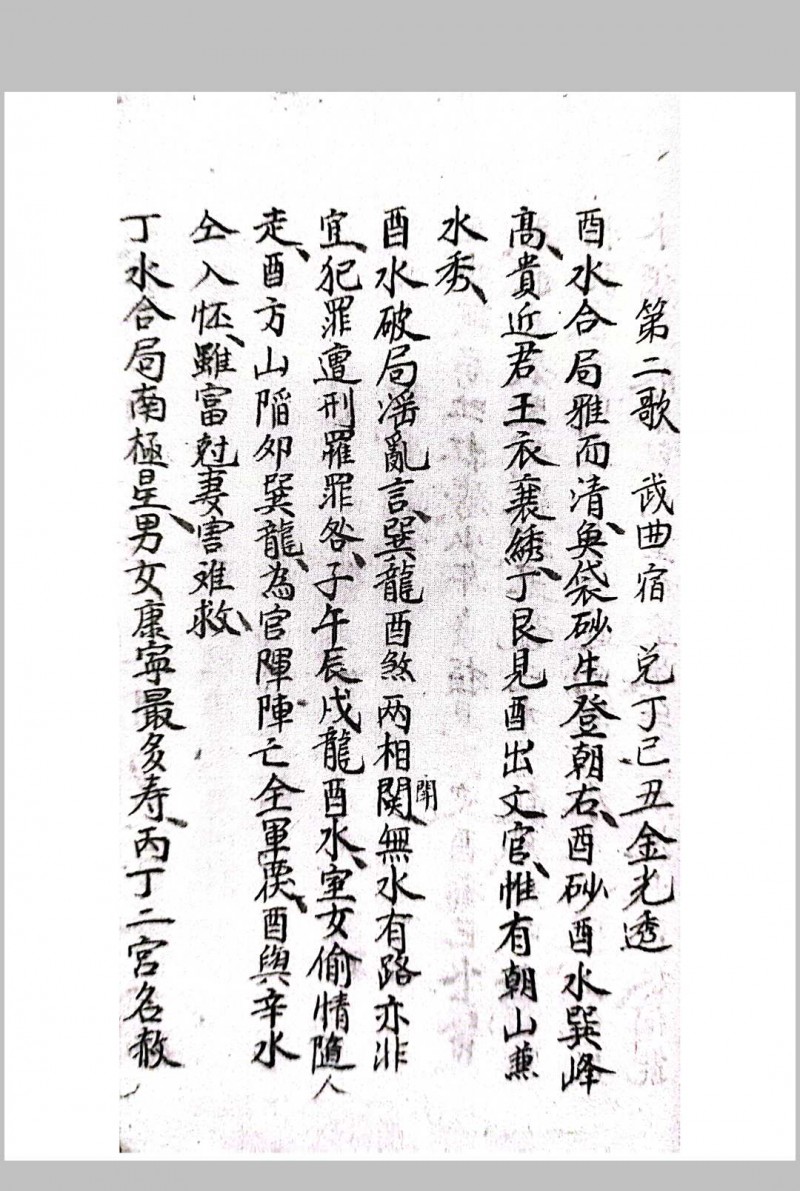 第二歌 武曲宿 兌丁巳丑金光透
酉水合局雅而清、魚袋砂生登朝右、酉砂酉水巽峰
高、貴近君王衣襄綉、丁艮見酉出文官、惟有朝山蕙
水秀、
酉水破局滛亂言、巽龍酉煞两相関開無水有路亦非
宜、犯罪遭刑罹罪咎、子午辰戌龍酉水、室女偷情隨人
走、酉方山陷夘巽龍、為官陣亡全軍覆、酉與辛水
仝入怀、雖富尅妻害难救、
丁水合局南極星、男女康寧最多寿、丙丁二宫名赦